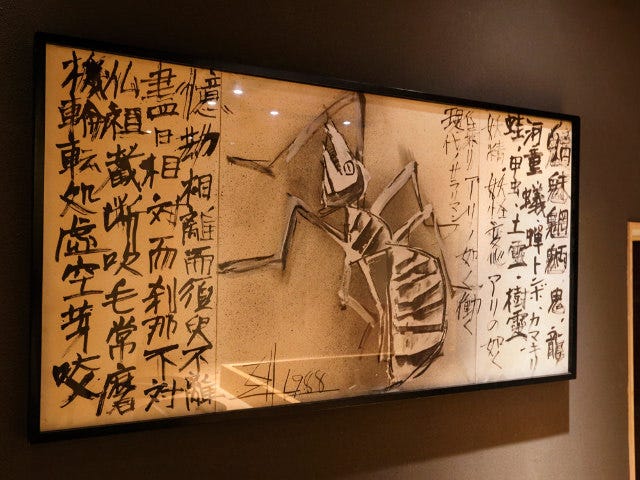 魑魅魍魎・鬼・龍
河童・蟻・蟬・トンボ・カマキリ
蛙・甲虫・土霊・樹霊
妖精・妖怪変化アリの如く
アリノ如く働く
現代ノサラリーマン
憶劫相離而須臾不離
盡日相対而刹那不対
仏祖截断吹毛常磨
機輪転処虚空芽咬
1988